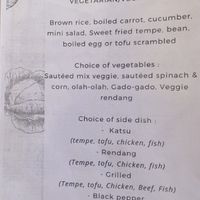 VEGETARIAN,
Brown rice, boiled carrot, cucumber,
mini salad, Sweet fried tempe, bean,
boiled egg or tofu scrambled
Choice of vegetables :
Sautéed mix veggie, sautéed spinach &
corn, olah-olah, Gado-gado, Veggie
rendang
Choice of side dish :
- Katsu
(tempe, tofu, chicken, fish)
- Rendang
(Tempe, tofu, Chicken, fish)
- Grilled
(Tempe, tofu, Chicken, Beef, Fish)
- Black pepper